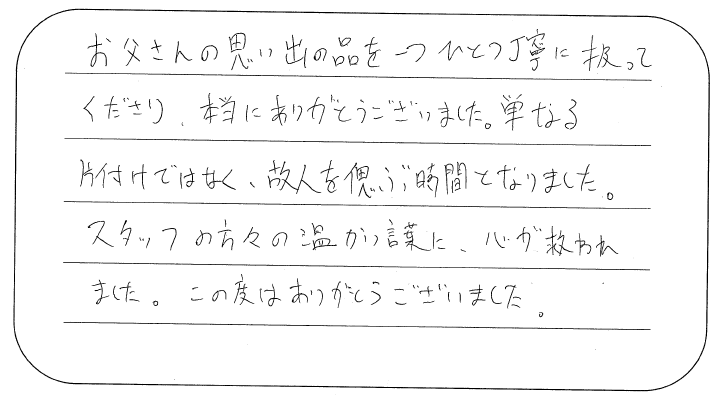 お父さんの思い出の品を一つひとつ丁寧に扱って
くださり、本当にありがとうございました。単なる
片付けではなく、故人を偲ぶ時間となりました。
スタッフの方々の温かい言葉に、心が救われ
ました。この度はありがとうございました。